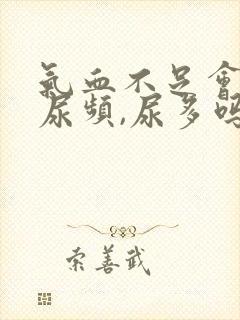 氣血不足會
尿頻,尿多嗎
索善武